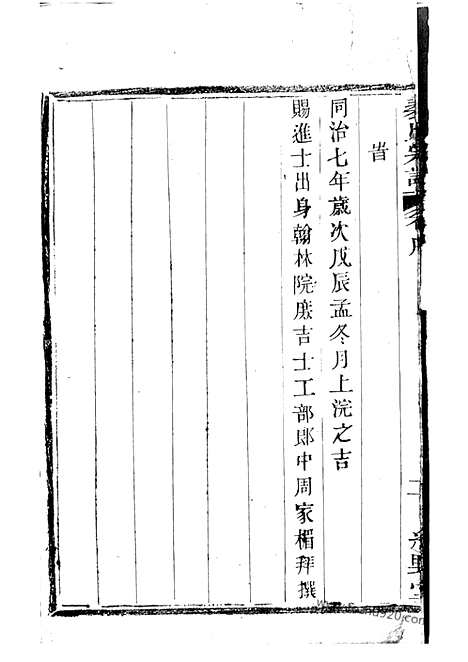 昔
同治七年歲次戊辰孟冬月上浣之吉
賜進士出身翰林院庶吉士工部郎中周家楣拜撰
二